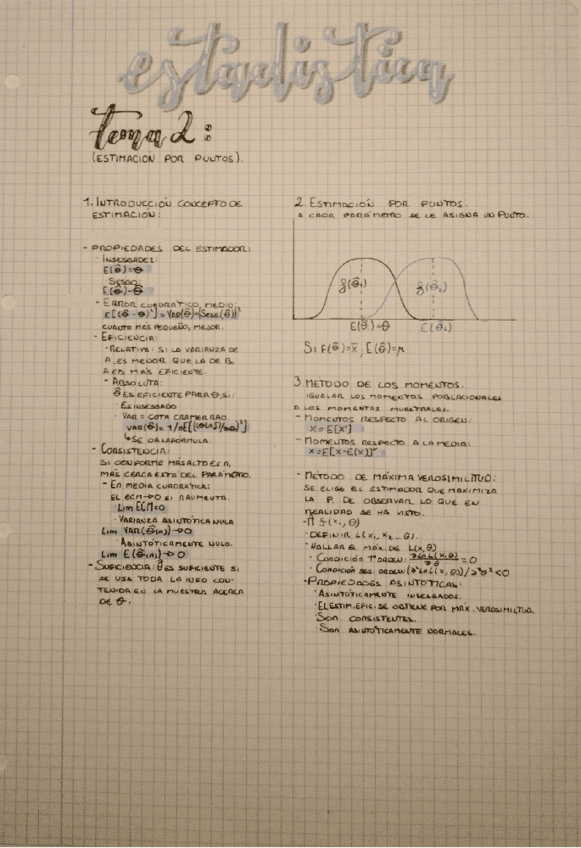 estadistica
tema 2:
(ESTIMACION POR PUNTOS).
1. INTRODUCCIÓN CONCEPTO DE
ESTIMACION:
- PROPIEDADES DEL ESTIMADOR:
- INSESGADEZ:
E(θ̂)=θ
SESGO
E(θ̂)-θ
- ERROR CUADRATICO MEDIO:
E[(θ̂-θ)²]=VAR(θ̂)+[SESG(θ̂)]²
CUANTO MÁS PEQUEÑO, MEJOR.
- EFICIENCIA:
- RELATIVA: SI LA VARIANZA DE
A, ES MEJOR QUE LA DE B,
A ES MÁS EFICIENTE.
- ABSOLUTA:
θ̂ ES EFICIENTE PARA θ SI:
· ES INSESGADO
· VAR = COTA CRAMER RAO.
VAR(θ̂)= 1/nE[
↳ SE DA LA FÓRMULA.
- CONSISTENCIA:
SI CONFORME MÁS ALTO ES n,
MÁS CERCA ESTÁ DEL PARÁMETRO.
- EN MEDIA CUADRÁTICA:
EL ECM→0 SI n AUMENTA.
LIM ECM=0
· VARIANZA ASINTÓTICA NULA
LIM VAR(θ̂(n))→0
· ASINTÓTICAMENTE NULO.
LIM E(θ̂(n))→0
- SUFICIENCIA: θ̂ ES SUFICIENTE SI
SE USA TODA LA INFO CON-
TENIDA EN LA MUESTRA ACERCA
DE θ.
2. ESTIMACIÓN POR PUNTOS.
A CADA PARÁMETRO SE LE ASIGNA UN PUNTO.
f(θ̂₁) f(θ̂₂)
E(θ̂₁)=θ E(θ̂₂)
SI E(θ̂)=x̄, E(θ̂)=μ
3. METODO DE LOS MOMENTOS.
IGUALAR LOS MOMENTOS POBLACIONALES
A LOS MOMENTOS MUESTRALES.
- MOMENTOS RESPECTO AL ORIGEN:
x=E[xʳ]
- MOMENTOS RESPECTO A LA MEDIA:
x=E[x-E(x)]ʳ
- MÉTODO DE MÁXIMA VEROSIMILITUD:
SE ELIGE EL ESTIMADOR QUE MAXIMIZA
LA P. DE OBSERVAR LO QUE EN
REALIDAD SE HA VISTO.
-Π f(xᵢ, θ)
- DEFINIR L(x₁, x₂ ... θ).
- HALLAR EL MÁX. DE L(x,θ)
· CONDICIÓN 1ᵉʳ ORDEN: ∂ ln L(x,θ)/∂θ =0
· CONDICIÓN SEG. ORDEN: (∂² ln L(x,θ))/∂²θ² <0
- PROPIEDADES ASINTÓTICAS:
· ASINTÓTICAMENTE INSESGADOS.
· EL ESTIM. EFIC. SE OBTIENE POR MÁX. VEROSIMILITUD.
· SON CONSISTENTES.
· SON ASINTÓTICAMENTE NORMALES.